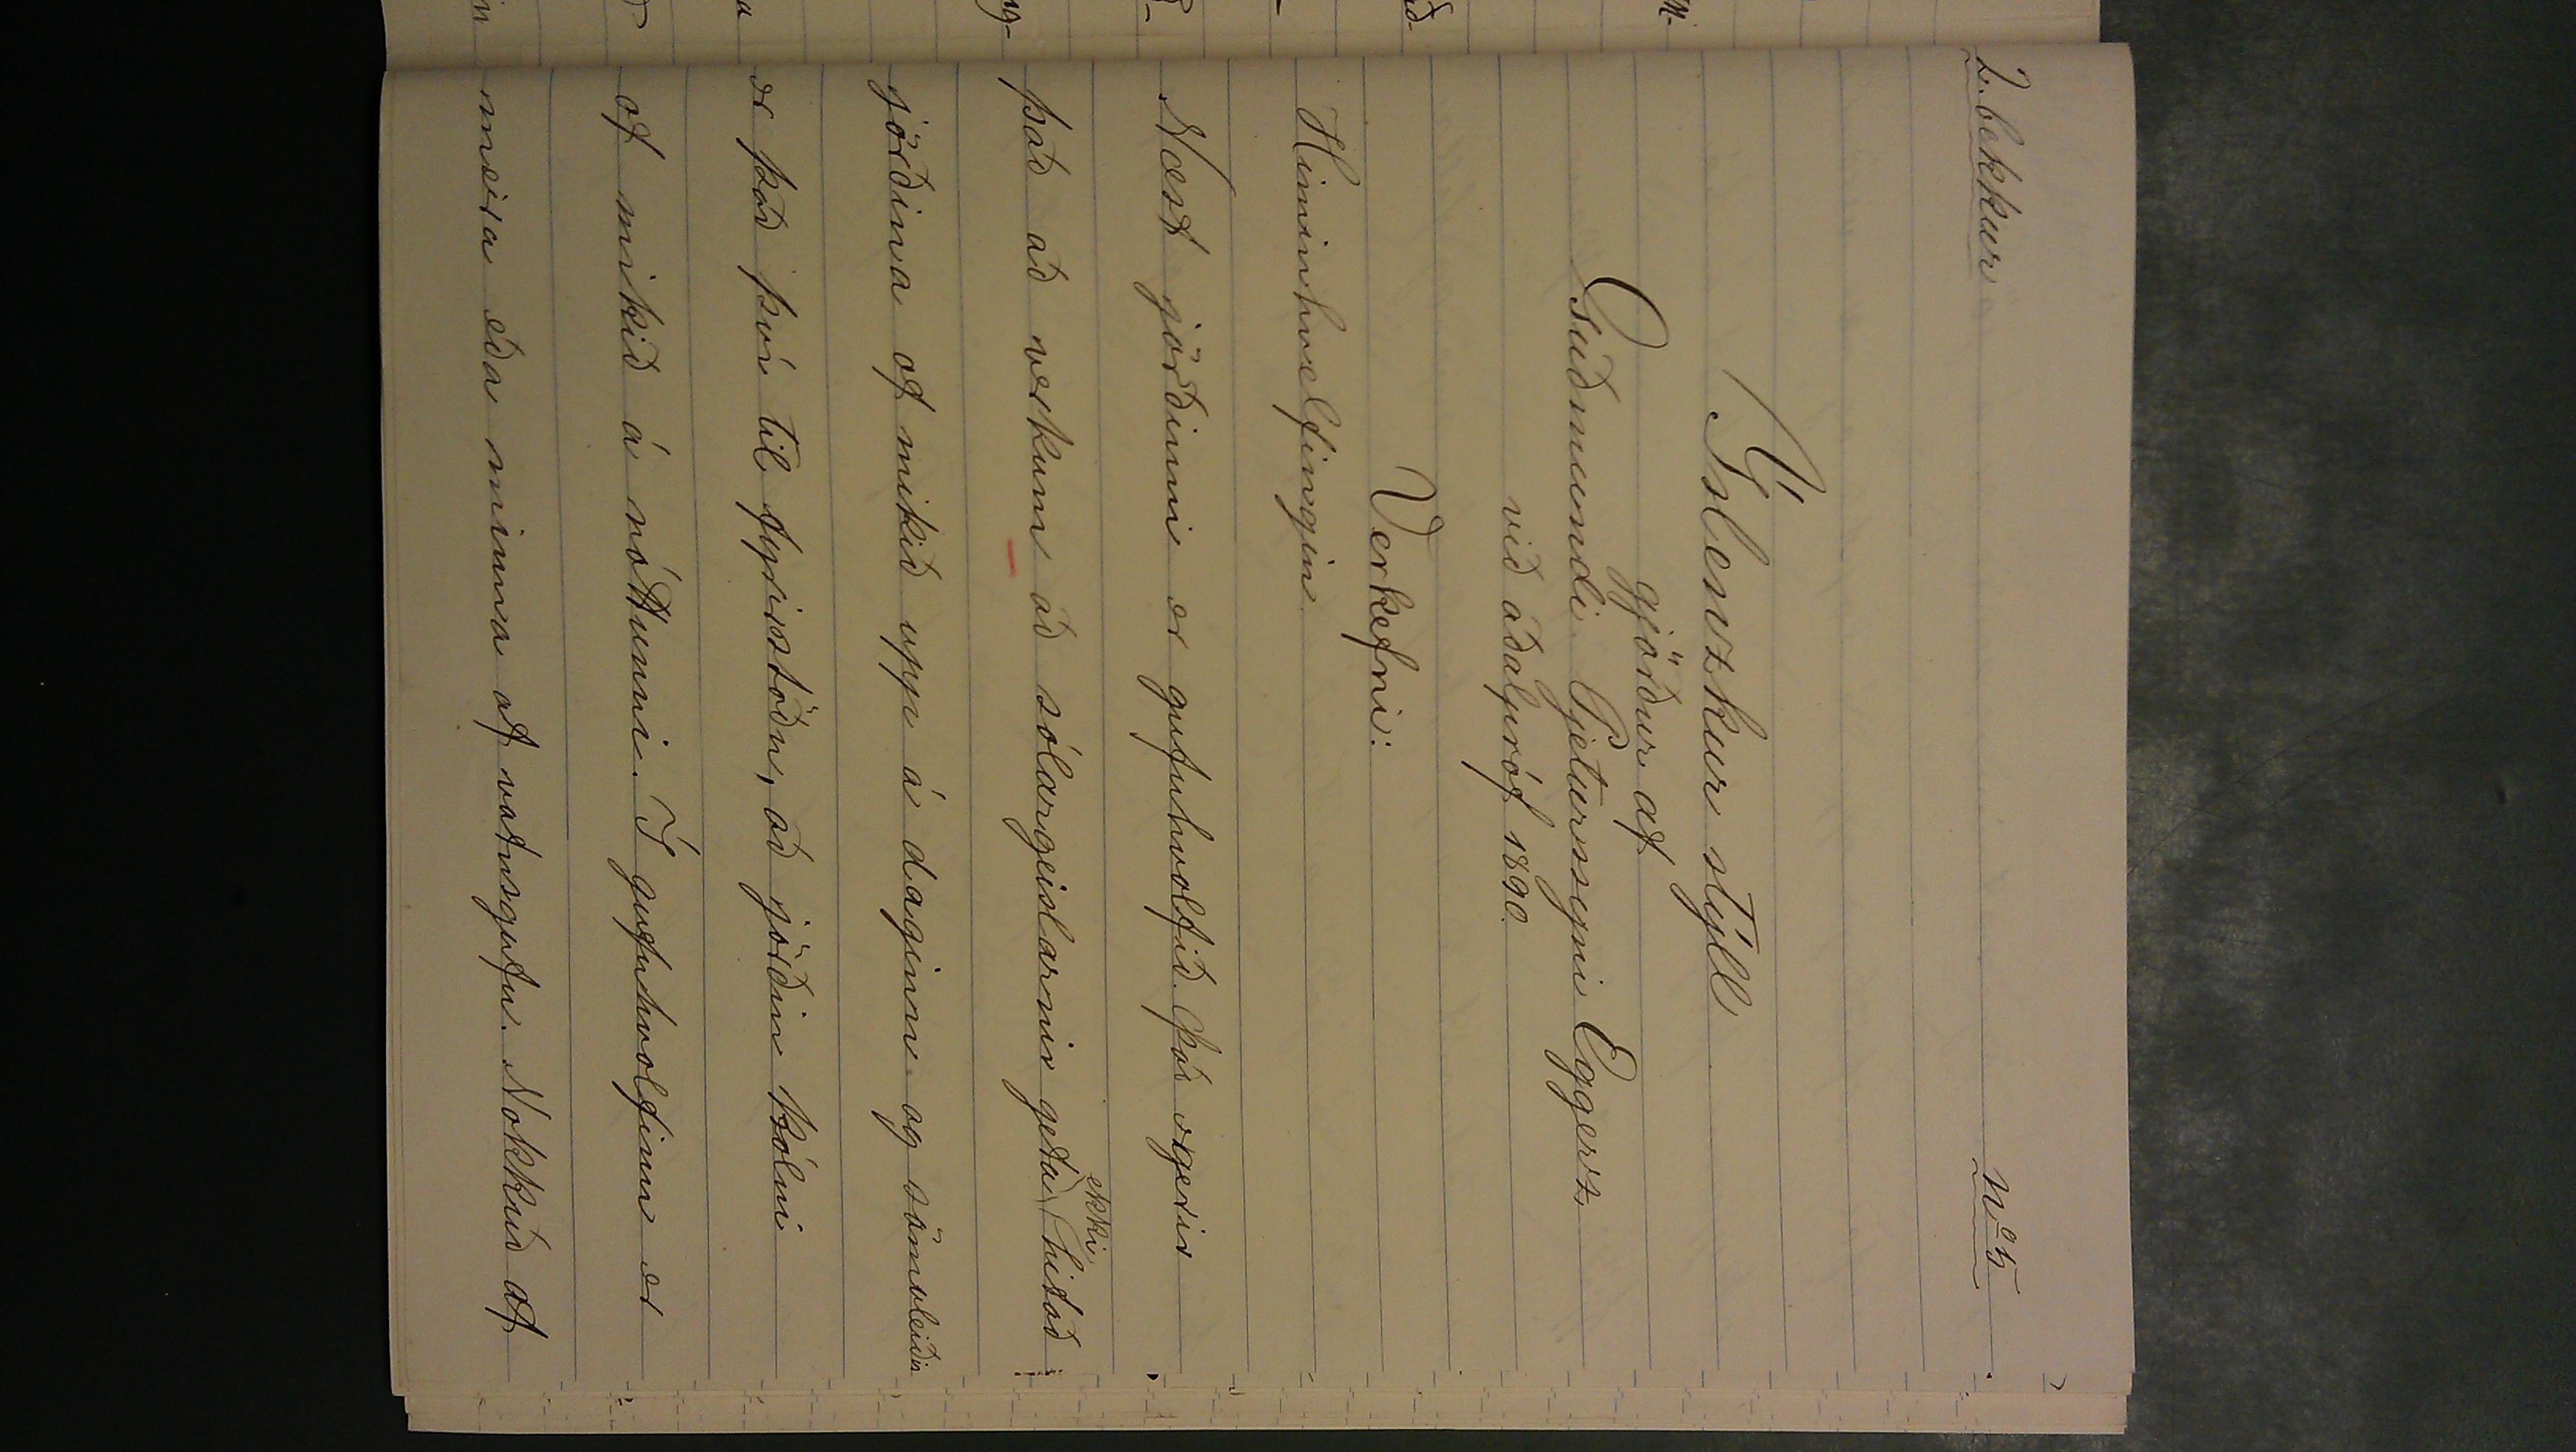 2. bekkur
No 5
Íslenzkur stýll
gjörður af
Guðmundi Pjeturssyni Eggerz
við aðalpróf 1890.
Verkefni:
Himinhvelfingin.
Næst jörðinni er gufuhvolfið. Það orgerir
það að verkum að sólargeislarnir geta ekki hitað
jörðina of mikið upp á daginn og sömuleiðis
er það því til fyrirstöðu, að jörðin kólni
of mikið á nóttunni. Í gufuhvolfinu er
meira eða minna af vatnsgufu. Nokkuð af